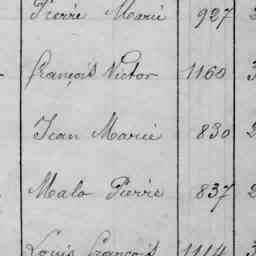 Pierre Marie 927
François Victor 1160
Jean Marie 830
Malo Pierre 837
Louis François 1114